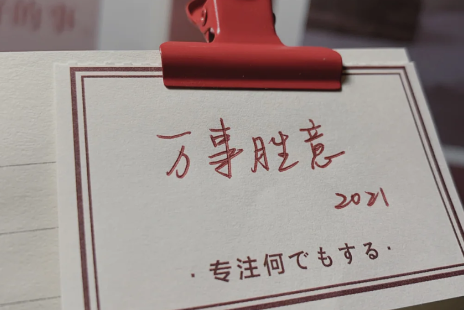 的事
万事胜意
2021
·专注何でもする·